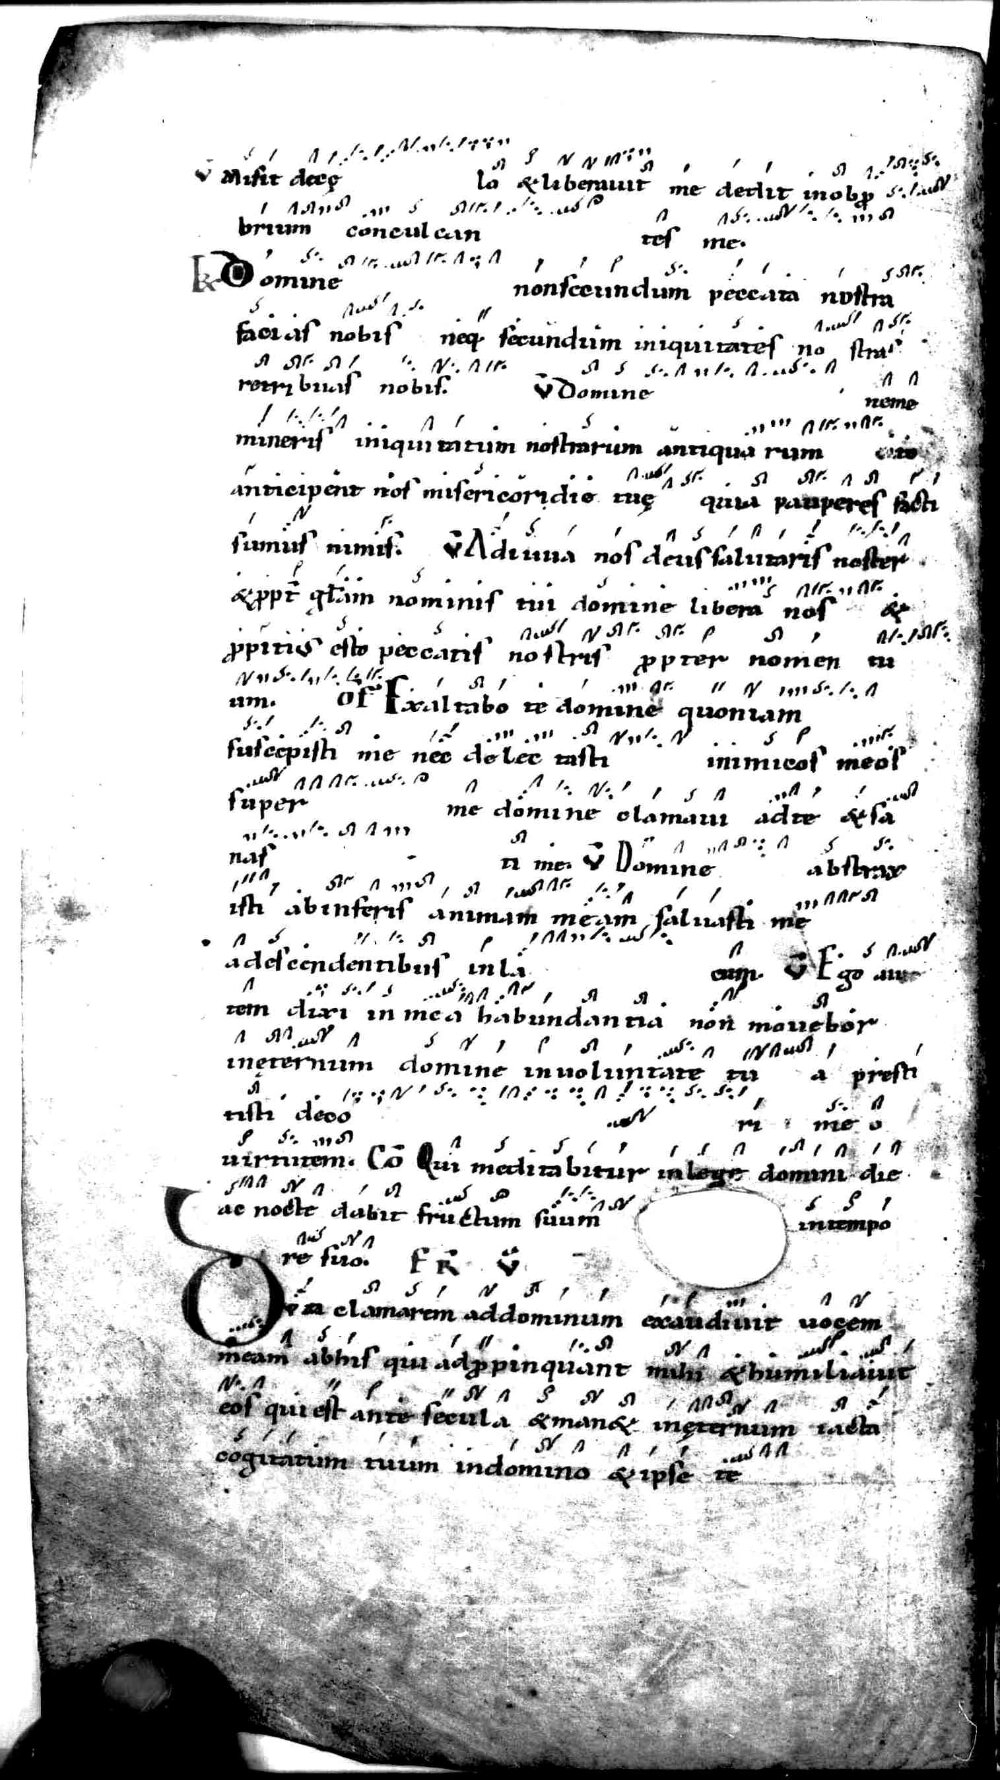 v̄ Misit decę lo & liberauit me dedit in obp
brium conculcan tes me.
Domine non secundum peccata nostra
facias nobis neq secundum iniquitates no stras
retribuas nobis. v̄ Domine neme
mineris iniquitatum nostrarum antiqua rum cito
anticipent nos misericordie tuę quia pauperes facti
sumus nimis. v̄ Adiuua nos deus salutaris noster
& ꝓpt̄ gl̄am nominis tui domine libera nos &
ꝓpitiis esto peccatis nostris ꝓpter nomen tu
um. OF̄ Exaltabo te domine quoniam
suscepisti me nec delec tasti inimicos meos
super me domine clamaui ad te & sa
nas ti me. v̄ Domine abstrax
isti ab inferis animam meam saluasti me
a descendentibus in la cum. v̄ Ego au
tem dixi in mea habundantia non mouebor
in ęternum domine in uoluntate tu a presti
tisti deco ri me o
uirtutem. Cō Qui meditabitur in lege domini die
ac nocte dabit fructum suum in tempo
re suo. FR̄ v̄
Dum clamarem ad dominum exaudiuit uocem
meam ab his qui adꝓpinquant mihi & humiliauit
eos qui est ante secula & man& in ęternum iacta
cogitatum tuum in domino & ipse te